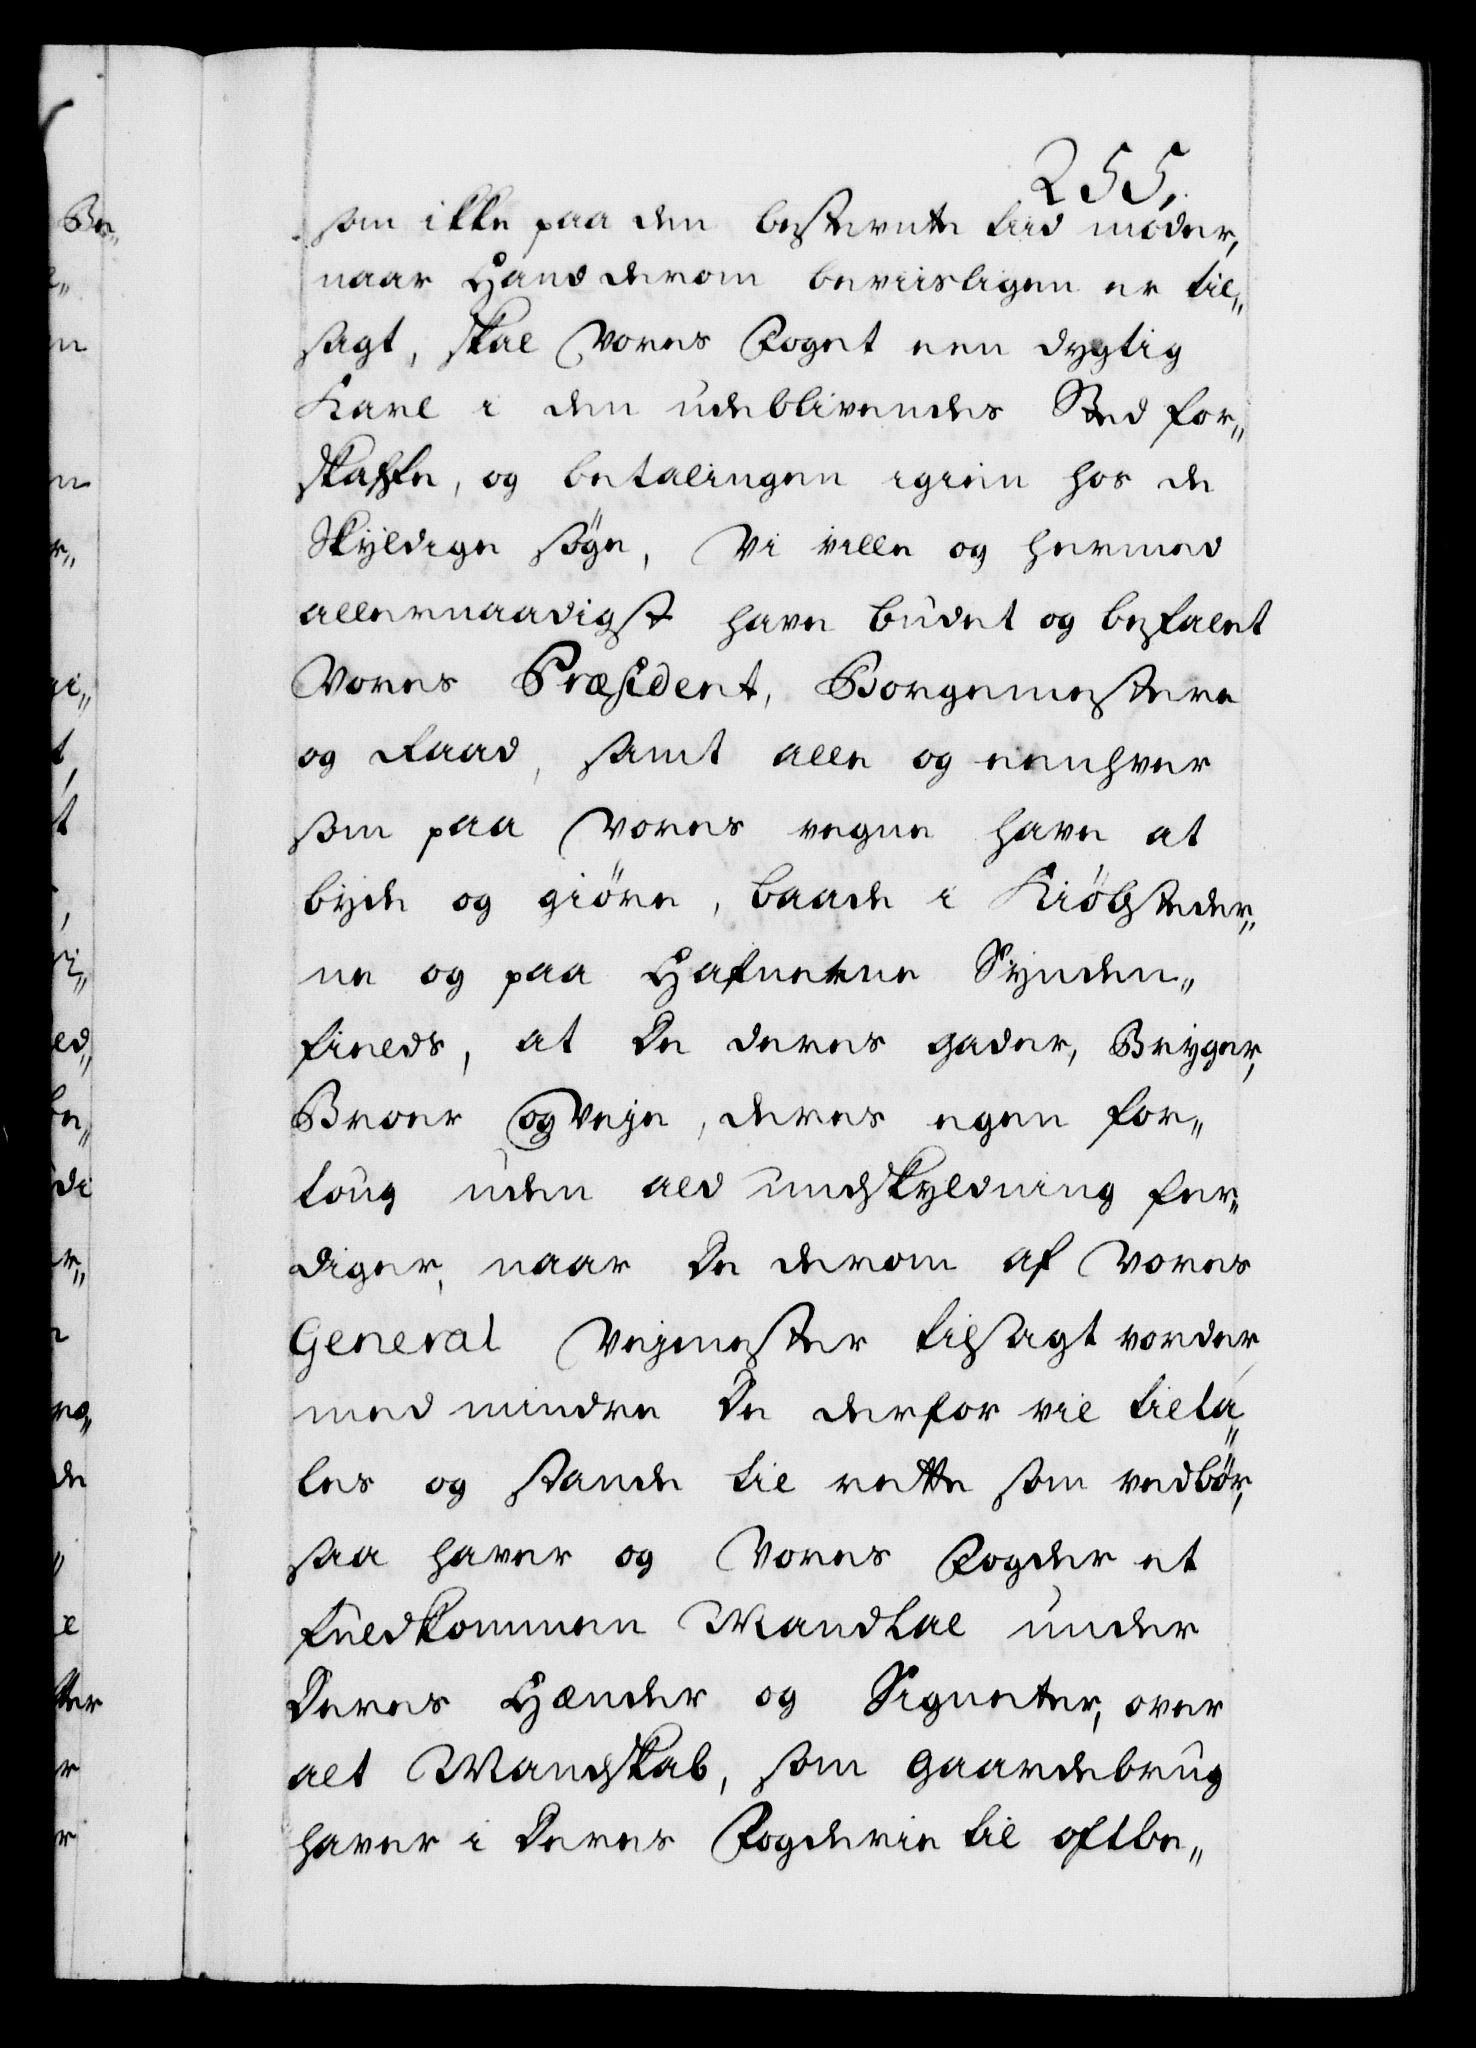 255.
som ikke paa den bestemte tiid møder,
naar Hand derom beviisligen er til„
sagt, skal Vores Foget een dygtig
Karl i den udeblivendes Sted for„
skaffe, og betalingen igien hos de
Skÿldige søge, Vi ville og hermed
allernaadigst have budet og befalet
Vores Præsident, Borgemestere
og Raad, samt alle og eenhver
som paa Vores vegne have at
byde og giöre, baade i Kiöbsteder„
ne og paa Hafnerne Synden„
fields, at De deres gader, Brÿger,
Broer og Veje, deres egen for„
toug uden ald undskÿldning fer„
diger, naar De derom af Vores
General Vejmester tilsagt vorder
med mindre De derfor vil tilta„
les og stande til rette som vedbör,
saa haver og Vores Fogder et
fuldkommen Mandtal under
Deres Hænder og Signeter, over
alt Mandskab, som gaardebrug
haver i Deres Fogderie til oftbe„
Be„